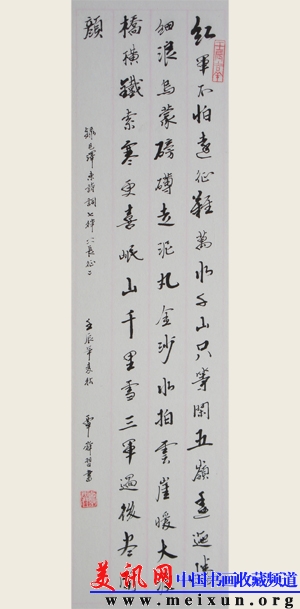 红军不怕远征難萬水千山只等閑五嶺逶迤騰
细浪烏蒙磅礴走泥丸金沙水拍雲崖暖大渡
橋横鐵索寒更喜岷山千里雪三軍過後盡開
顔
錄毛澤東詩詞七律長征
壬辰年
書
美讯网 中国书画收藏频道
www.meixun.org